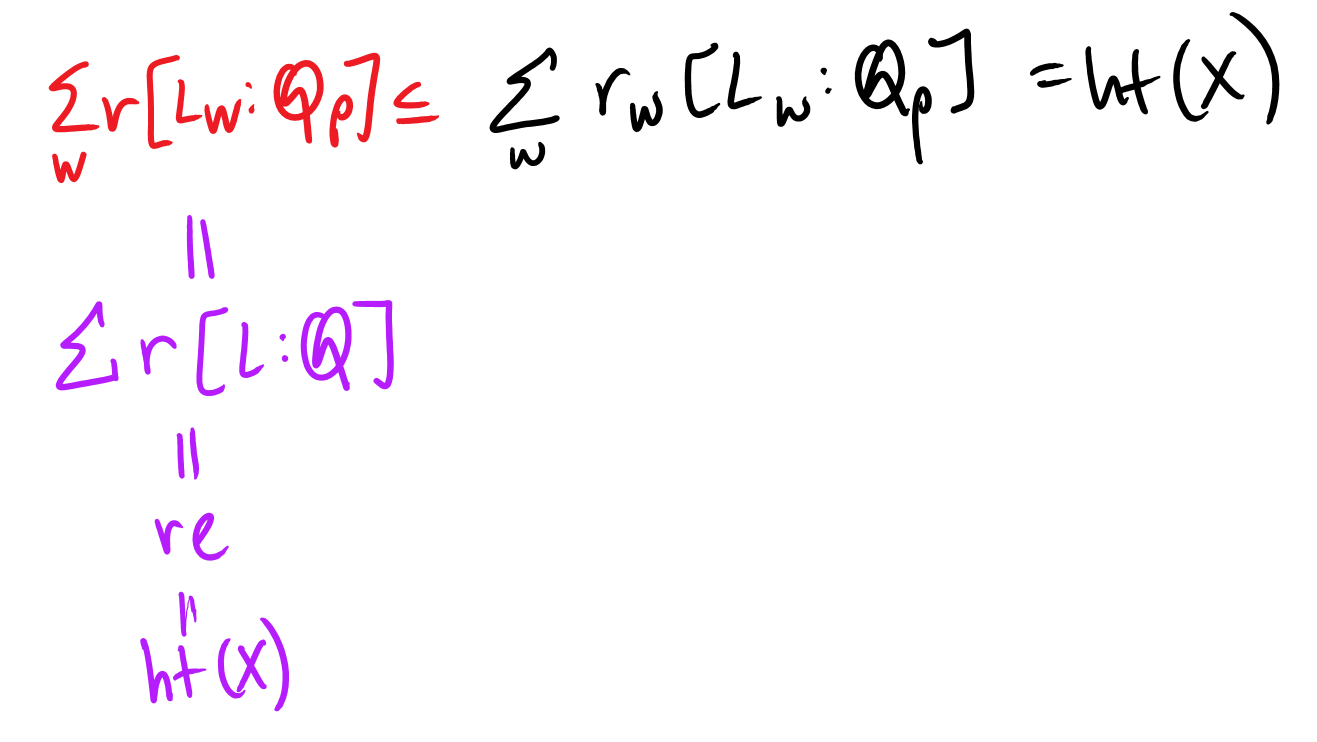 ∑_w r[L_w : Q_p] ≤ ∑_w r_w [L_w : Q_p] = ht(X)
||
∑ r[L : Q]
||
re
||
ht(X)